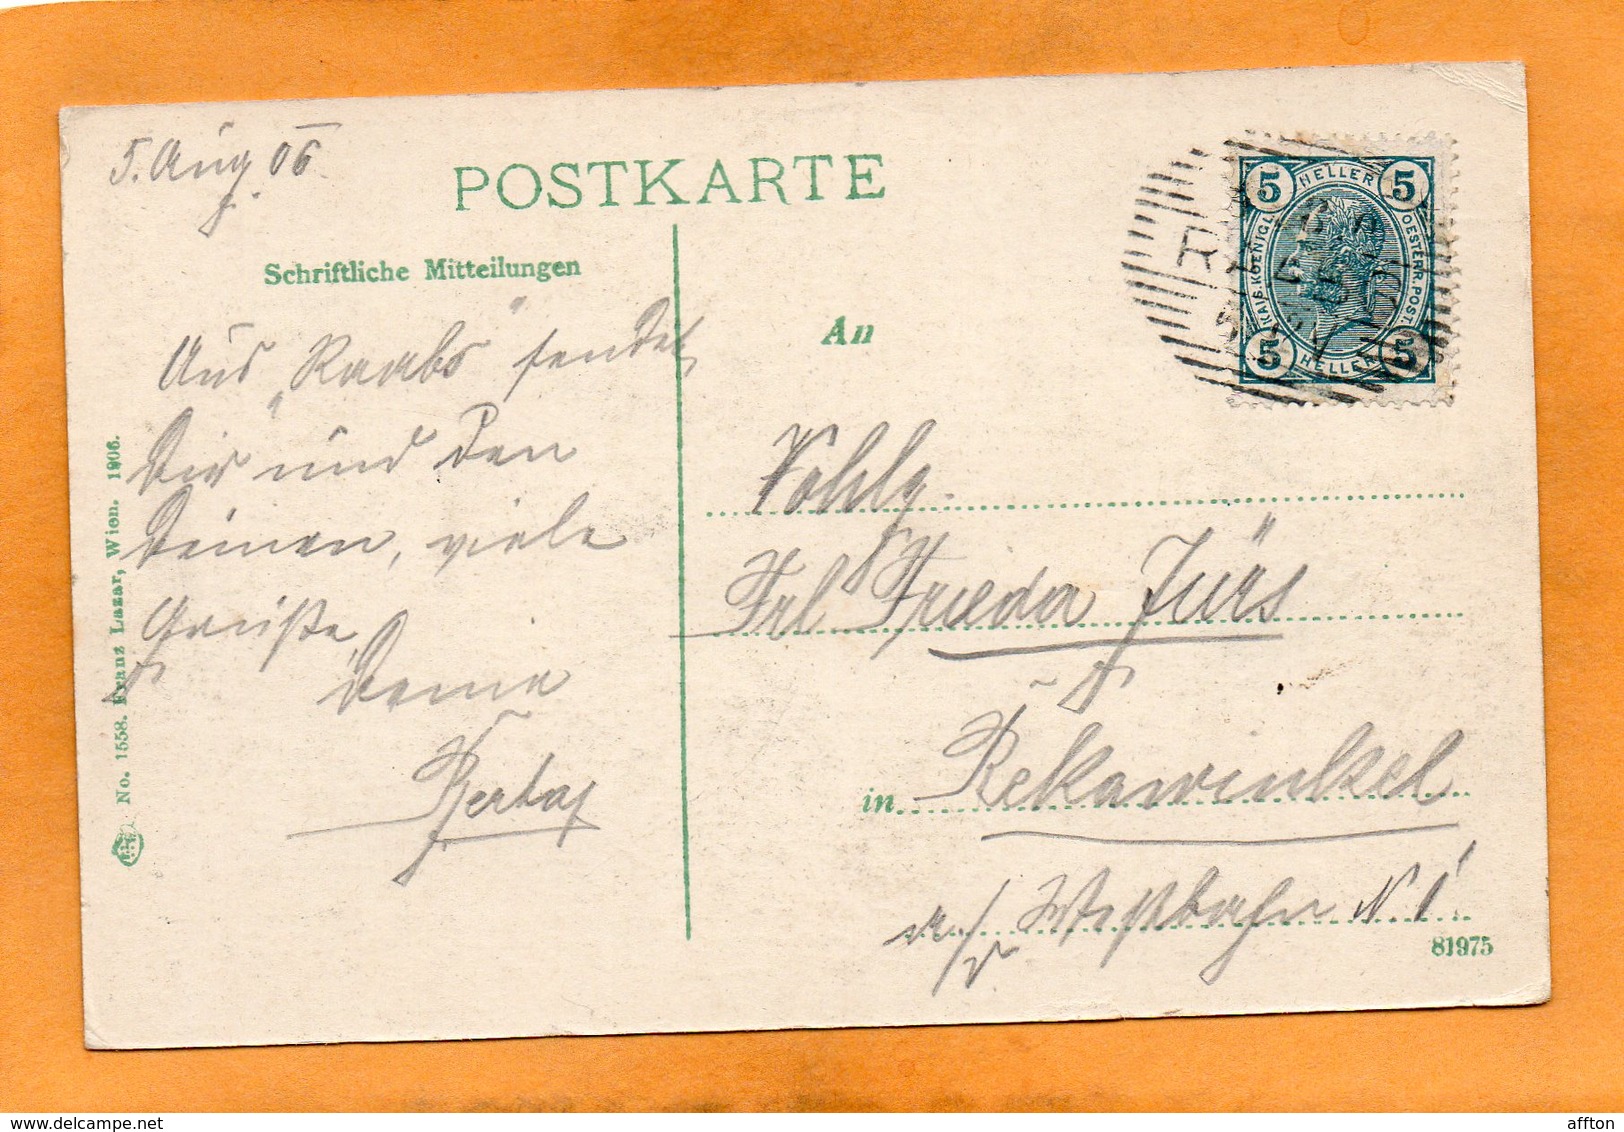 5. Aug. 06
POSTKARTE
Schriftliche Mitteilungen
Aus "Raabs" sendet
Dir und den
Deinen, viele
Grüße,
Deine
Berta
No. 1558. Franz Lazar, Wien. 1906.
An
Wohlg.
Frl Frieda Jürs
in Rekawinkel
a/d Westbahn N 1
81975
5 HELLER 5
KAIS. KOENIGL. OESTERR. POST.
5 HELLER 5
affton